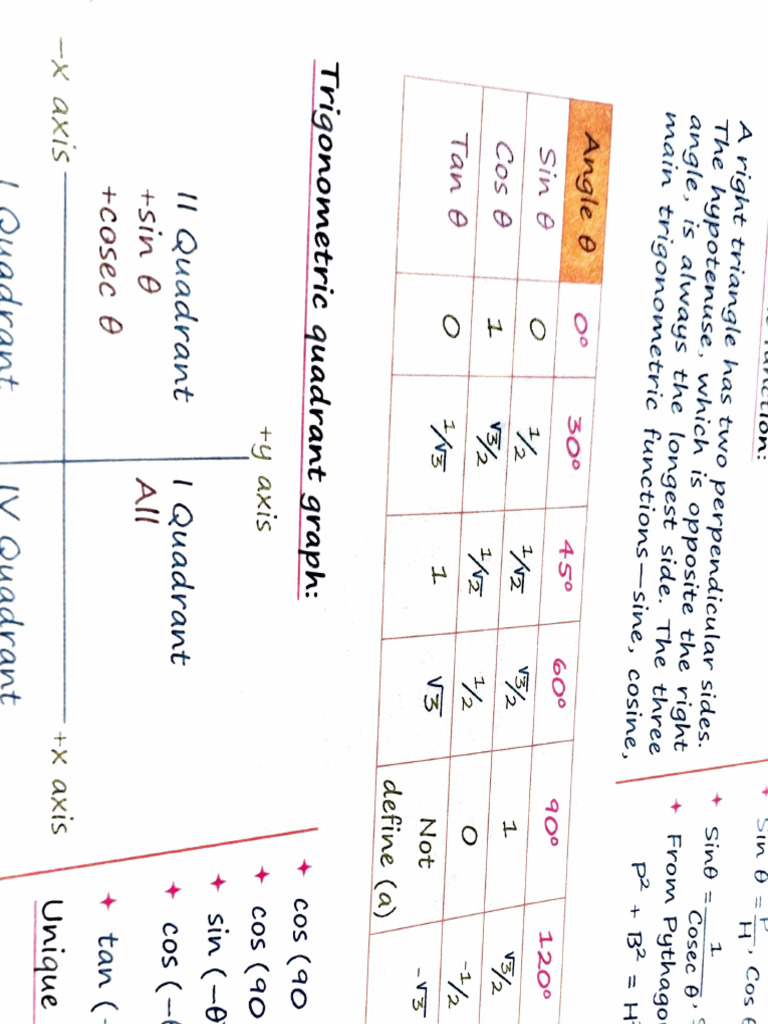 function:
A right triangle has two perpendicular sides.
The hypotenuse, which is opposite the right
angle, is always the longest side. The three
main trigonometric functions—sine, cosine,
Angle θ 0° 30° 45° 60° 90° 120°
Sin θ 0 1/2 1/√2 √3/2 1 √3/2
Cos θ 1 √3/2 1/√2 1/2 0 -1/2
Tan θ 0 1/√3 1 √3 Not define (a) -√3
Trigonometric quadrant graph:
+y axis
II Quadrant
+sin θ
+cosec θ
I Quadrant
All
-x axis
+x axis
IV Quadrant
Sin θ = P/H, Cos θ
Sinθ = 1/Cosec θ,
From Pythago
P² + B² = H²
cos (90
cos (90
sin (-θ
cos (-θ
tan (-
Unique